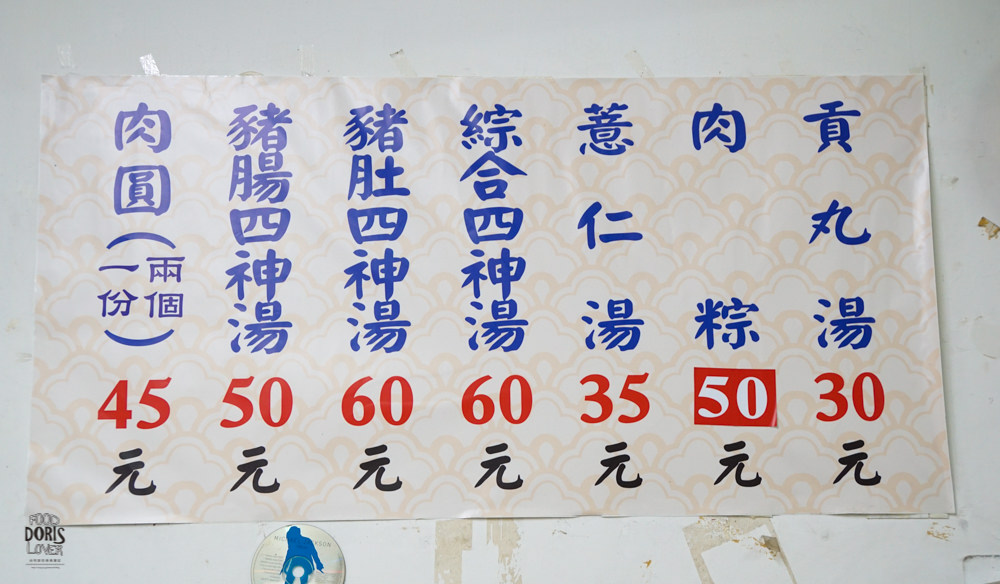 貢丸湯
30
元
肉粽
50
元
薏仁湯
35
元
綜合四神湯
60
元
豬肚四神湯
60
元
豬腸四神湯
50
元
肉圓(兩個一份)
45
元
FOOD
DORIS
LOVER